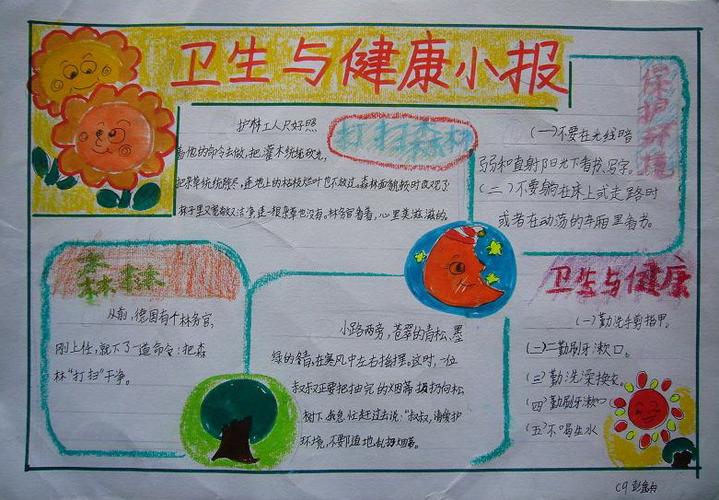 卫生与健康小报
打扫森林
护林工人只好照
着他的命令去做,把灌木统统砍光,
把杂草统统除尽,连地上的枯枝烂叶也不放过。森林面貌顿时改观了
林子里又宽敞又洁净,连一根杂草也没有。林务官看着,心里美滋滋的。
保护环境
(一)不要在光线暗
弱和直射阳光下看书、写字。
(二)不要躺在床上或走路时
或者在动荡的车厢里看书。
森林
从前,德国有个林务官,
刚上任,就下了一道命令:把森
林“打扫”干净。
小路两旁,苍翠的青松、墨
绿的冬青,在寒风中左右摇摆。这时,一位
叔叔正要把抽完的烟蒂扔向松
树下,我急忙赶过去说:“叔叔,请爱护
环境,不要随地乱扔烟蒂。
卫生与健康
(一)勤洗手剪指甲。
(二)二勤刷牙漱口。
(三)勤洗澡换衣
(四)勤刷牙漱口
(五)不喝生水